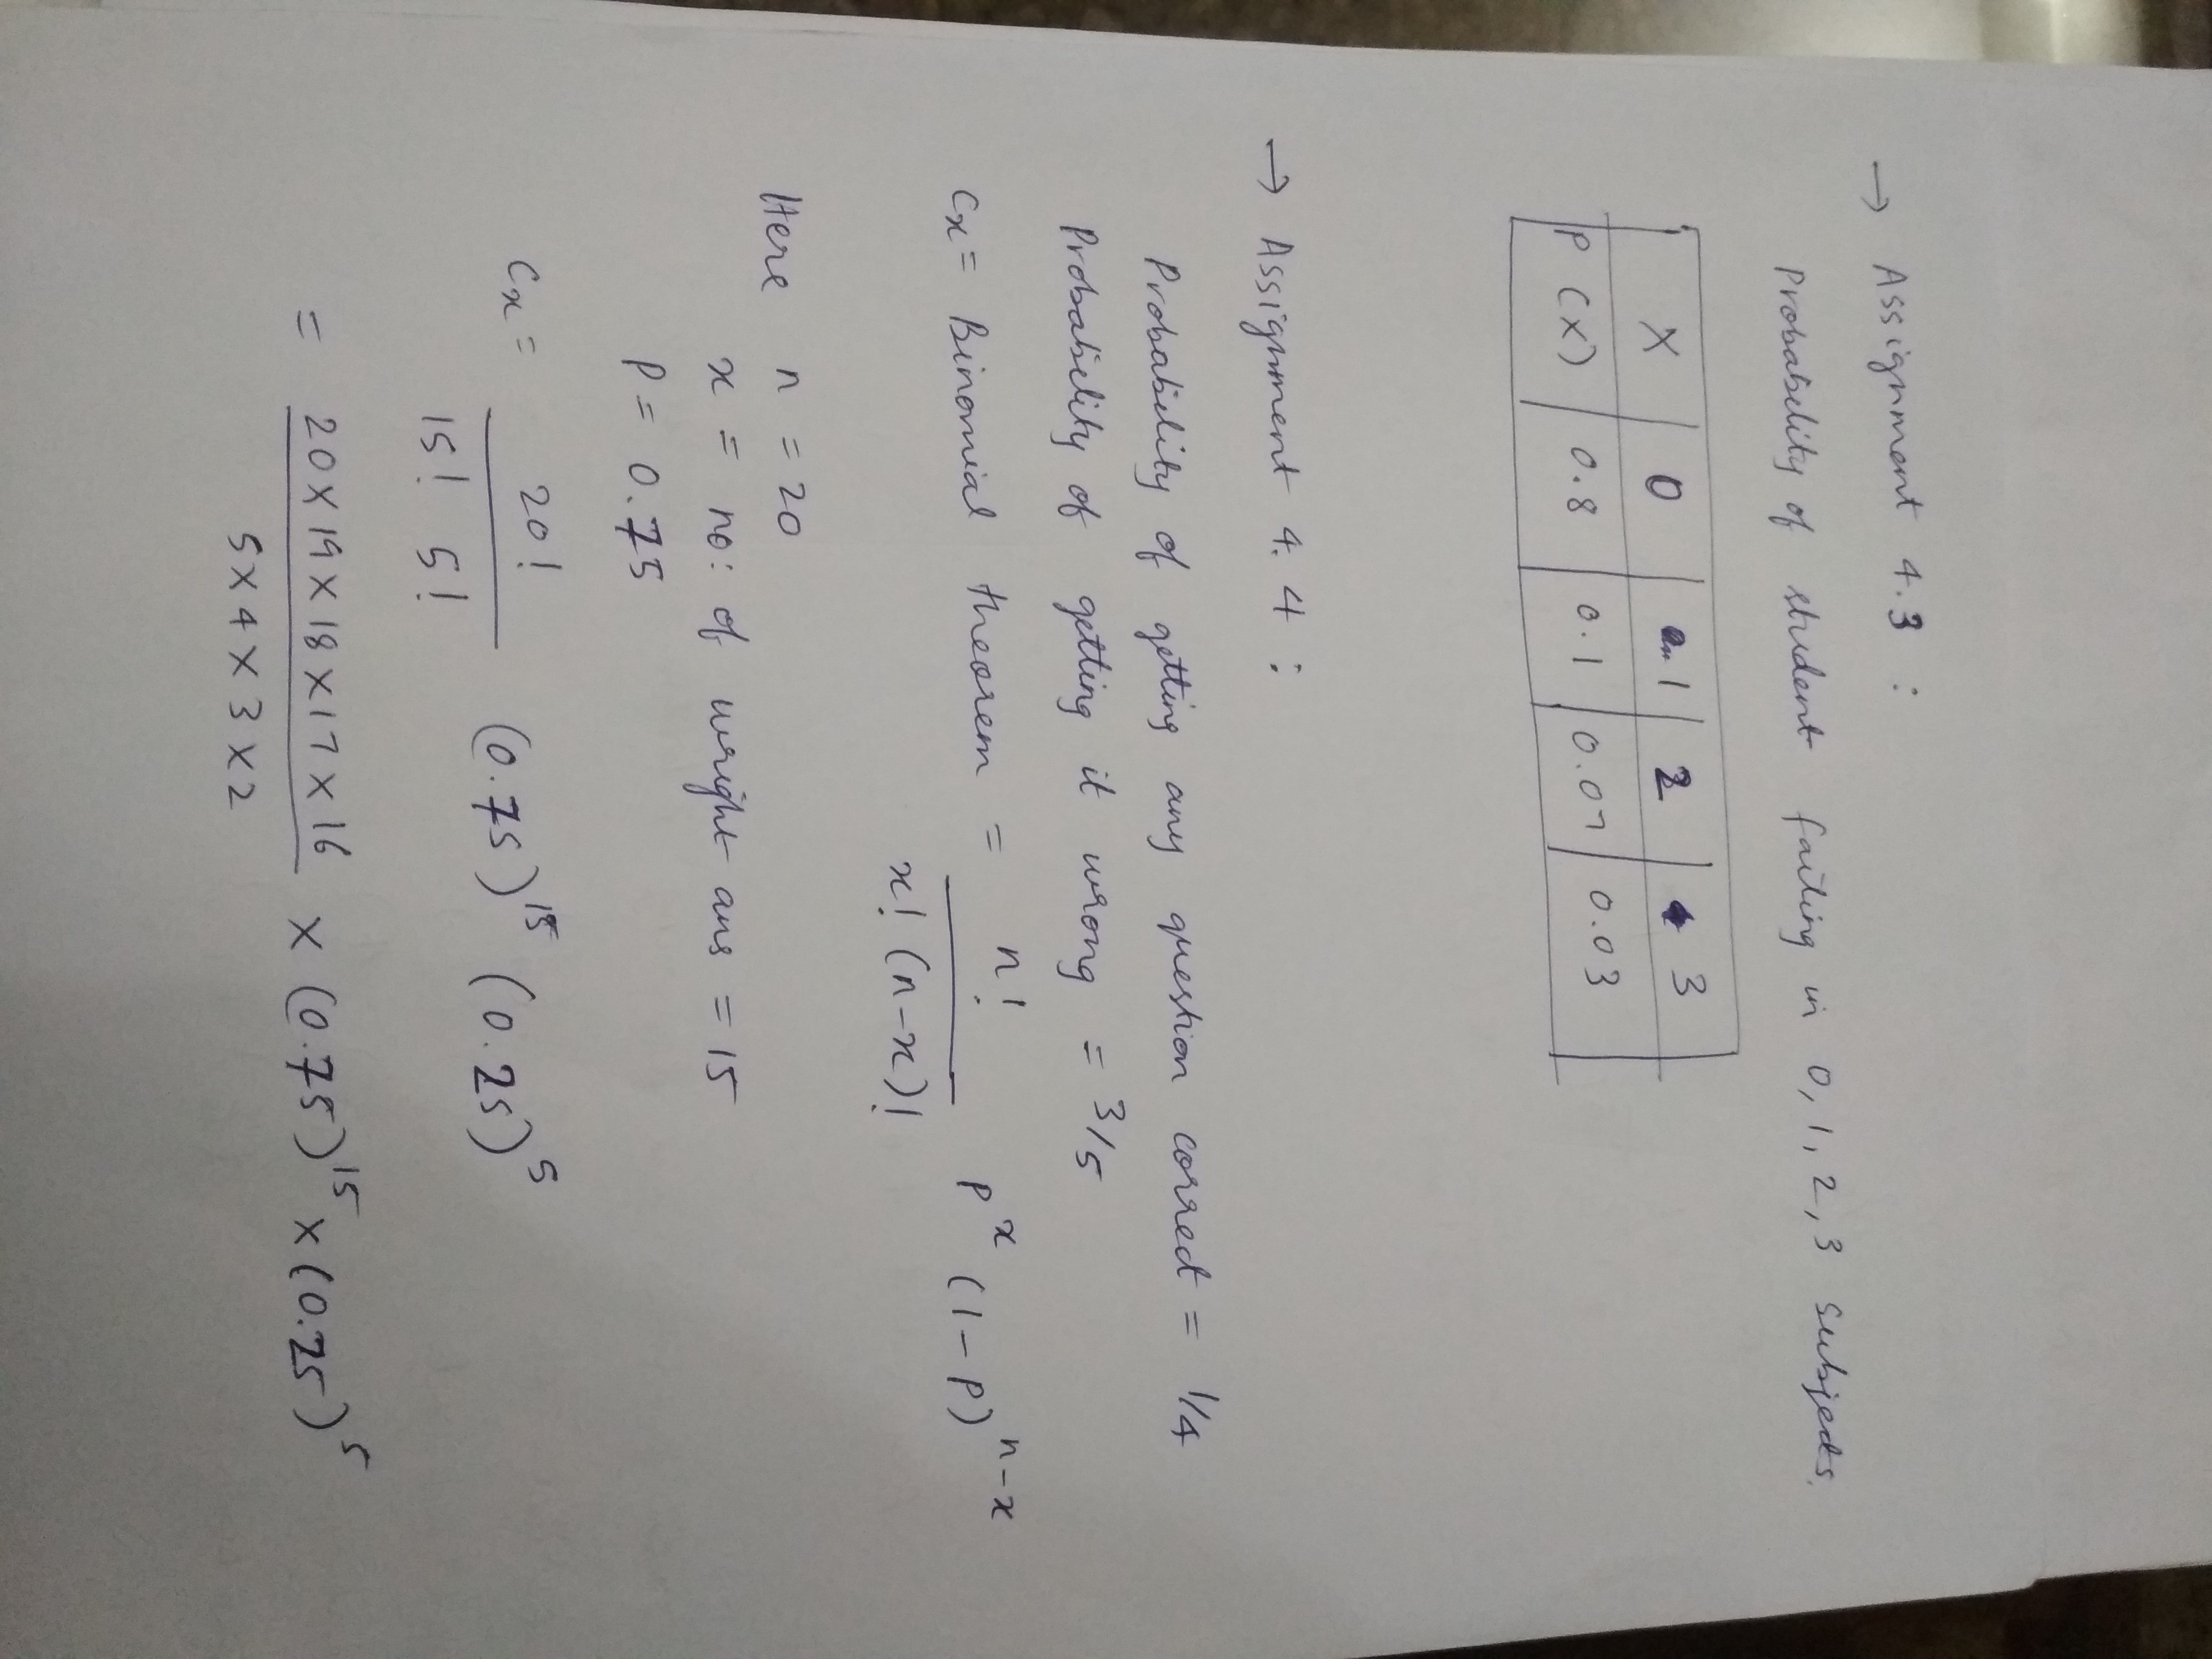 → Assignment 4.3 :
Probability of student failing in 0, 1, 2, 3 subjects.
X 0 1 2 3
P (X) 0.8 0.1 0.07 0.03
→ Assignment 4.4 :
Probability of getting any question correct = 1/4
Probability of getting it wrong = 3/5
Cx = Binomial theorem = n! / x! (n-x)! P^x (1-P)^n-x
Here n = 20
x = no: of wright ans = 15
P = 0.75
Cx = 20! / 15! 5! (0.75)^15 (0.25)^5
= 20 x 19 x 18 x 17 x 16 / 5 x 4 x 3 x 2 x (0.75)^15 x (0.25)^5